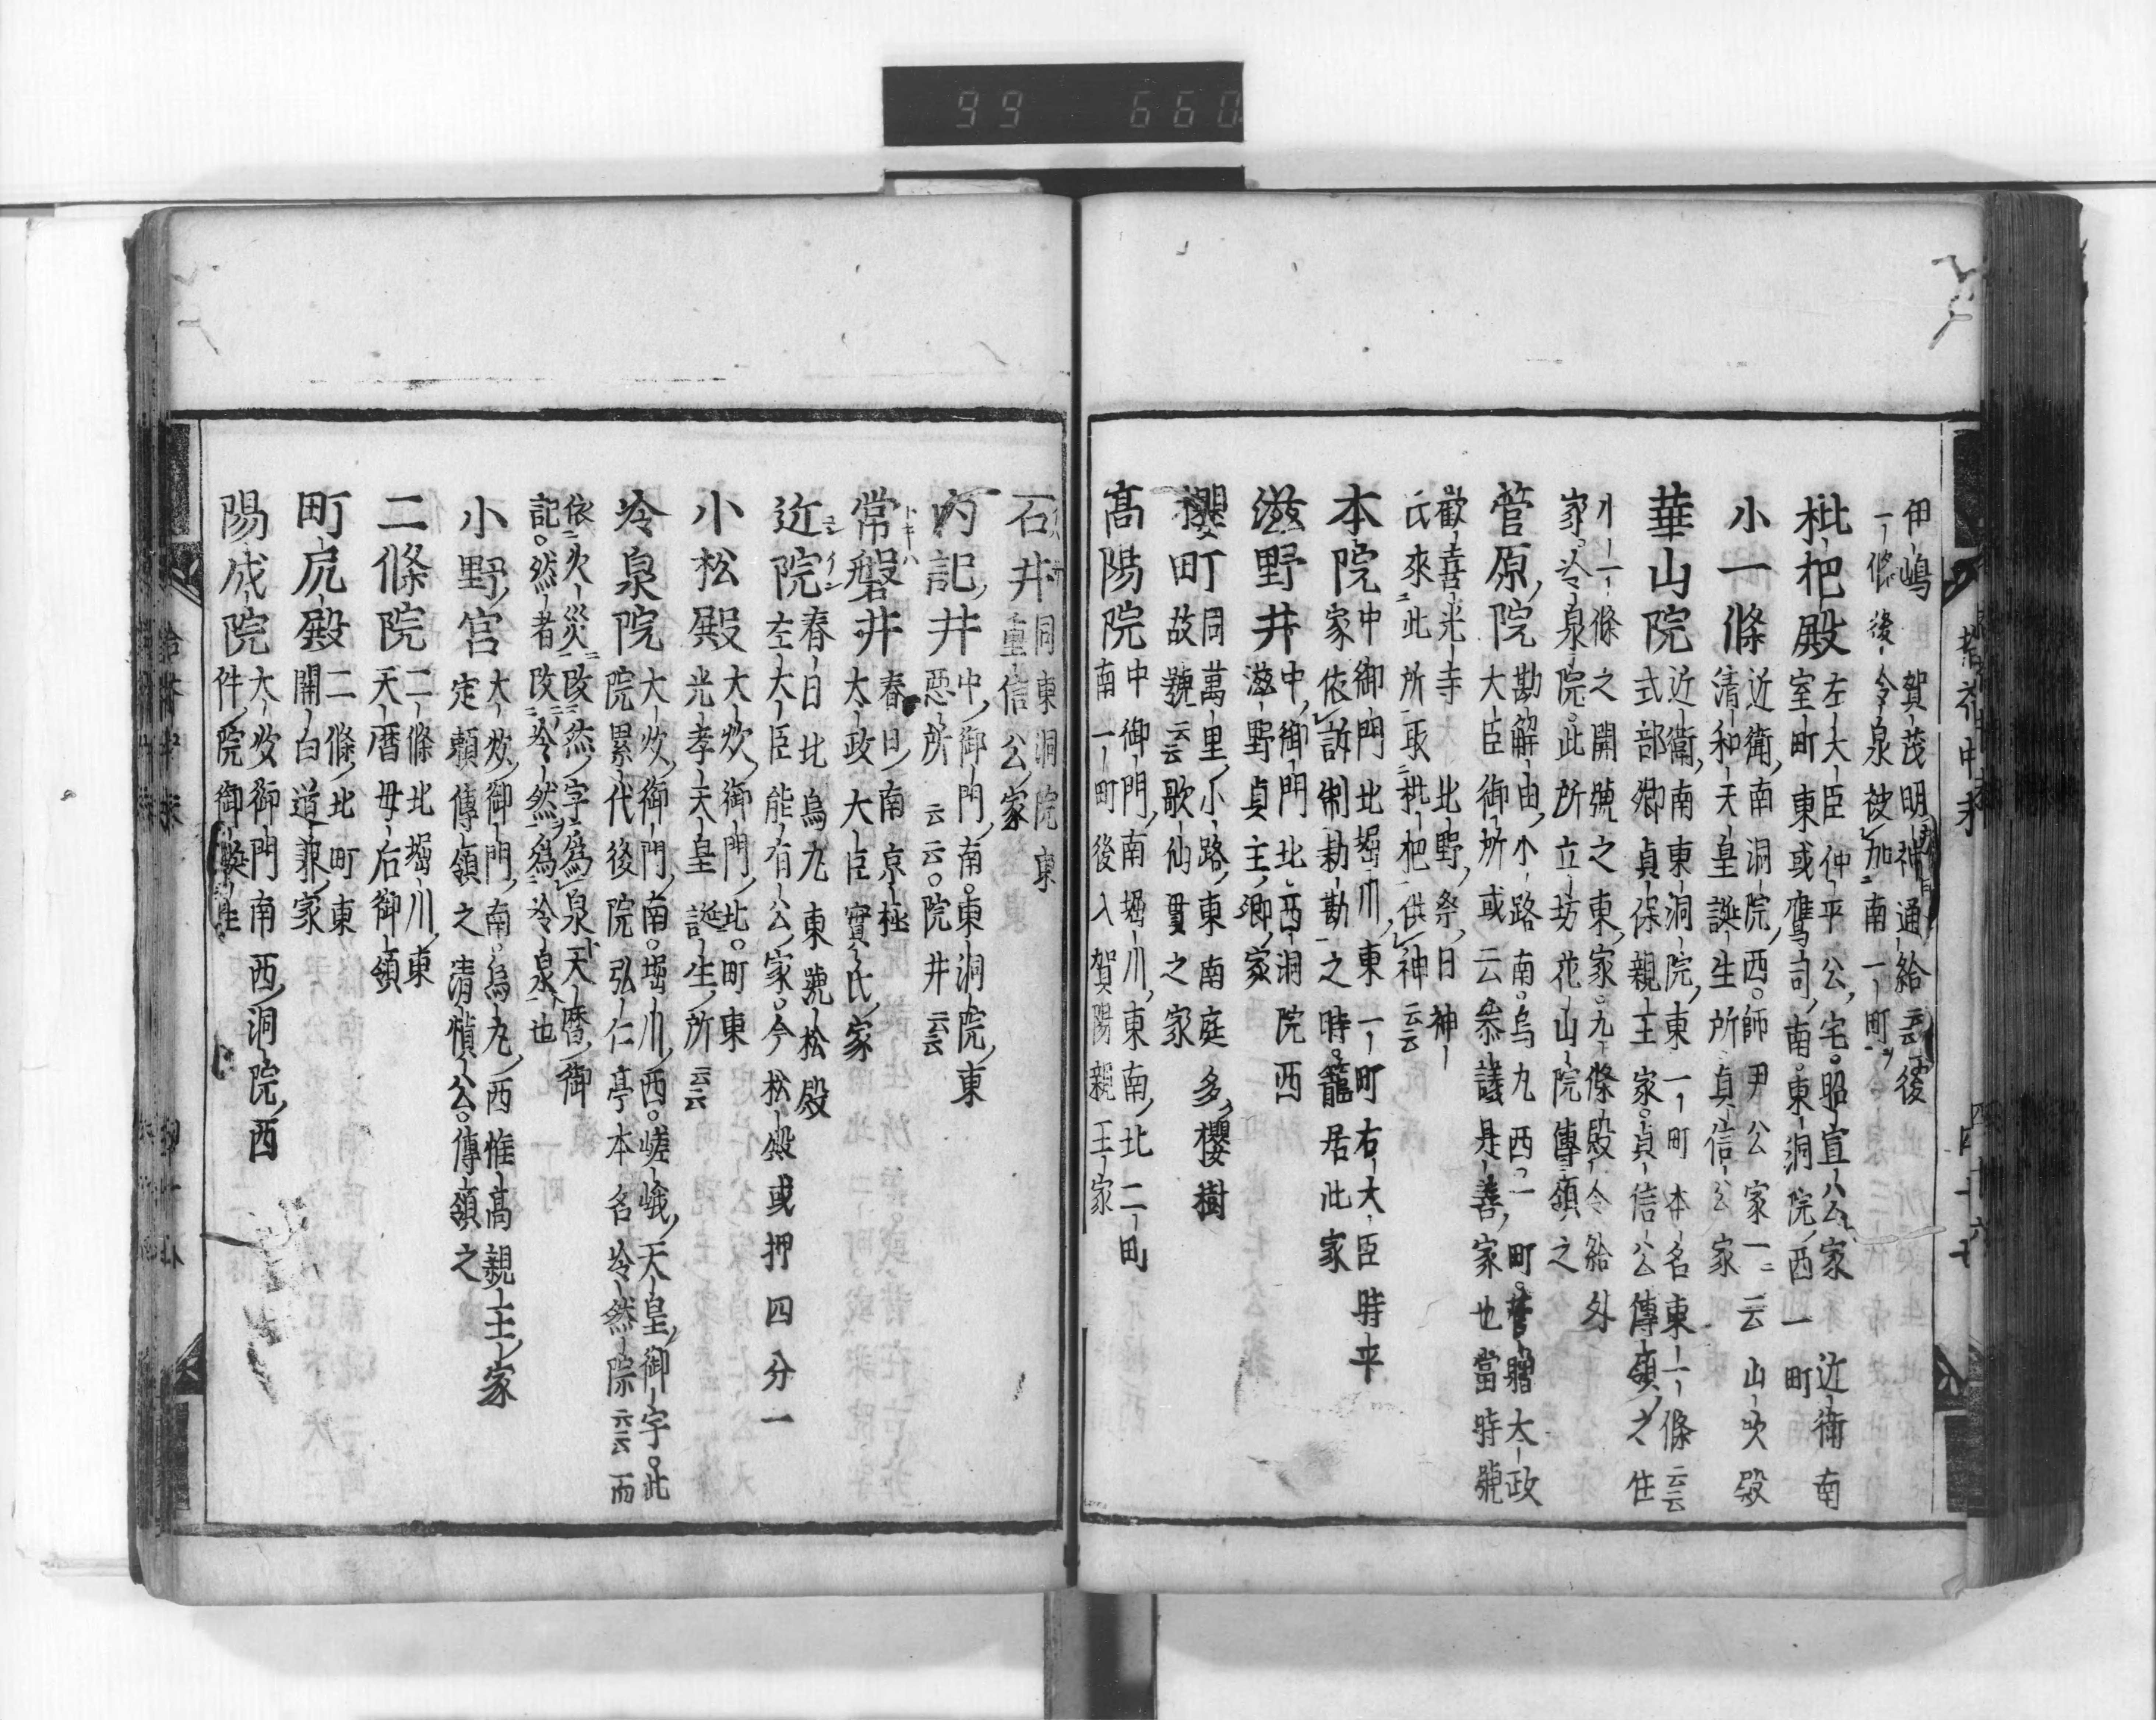 99 660
伊嶋 賀茂明神通給云云後
一條後令泉被加南一町
枇杷殿 左大臣仲平公宅。昭宣公家 近衛南
室町東或鷹司南。東洞院西一町
小一條 近衛南洞院西。師尹公家一云山吹殿
清和天皇誕生所貞信公家
華山院 近衛南東洞院東一町本名東一條云云
式部卿貞保親王家。貞信公傳領之住
之開號之東家。九條殿令給外
家。冷泉院此所立坊花山院傳領之
菅原院 勘解由小路南。烏丸西。一町。菅贈太政
大臣御所或云參議是善家也當時號
歡喜光寺 北野祭日神
氏來此所取枇杷供神云云
本院 中御門北堀川東一町右大臣時平
家依訴制勅勘之時。籠居此家
滋野井 中御門北西洞院西
滋野貞主卿家
櫻町 同萬里小路東南庭多櫻樹
故號云云歌仙貫之家
高陽院 中御門南堀川東南北二町
南一町後入賀陽親王家
石井 同東洞院東
重信公家
内記井 中御門南。東洞院東
惡所云云。院井云云
常磐井 春日南京極
太政大臣實氏家
近院 春日北烏丸東號松殿
左大臣能有公家。今松殿或押四分一
小松殿 大炊御門北。町東
光孝天皇誕生所云云
冷泉院 大炊御門南。堀川西。嵯峨天皇御宇。此
院累代後院弘仁亭本名冷然院云云而
依火災改然字爲泉天曆御
記。然者改冷然爲冷泉也
小野宮 大炊御門南。烏丸西惟高親王家
定頼傳領之清愼公。傳領之
二條院 二條北堀川東
天暦母后御領
町尻殿 二條北町東
開白道兼家
陽成院 大炊御門南西洞院西
件院御誕生